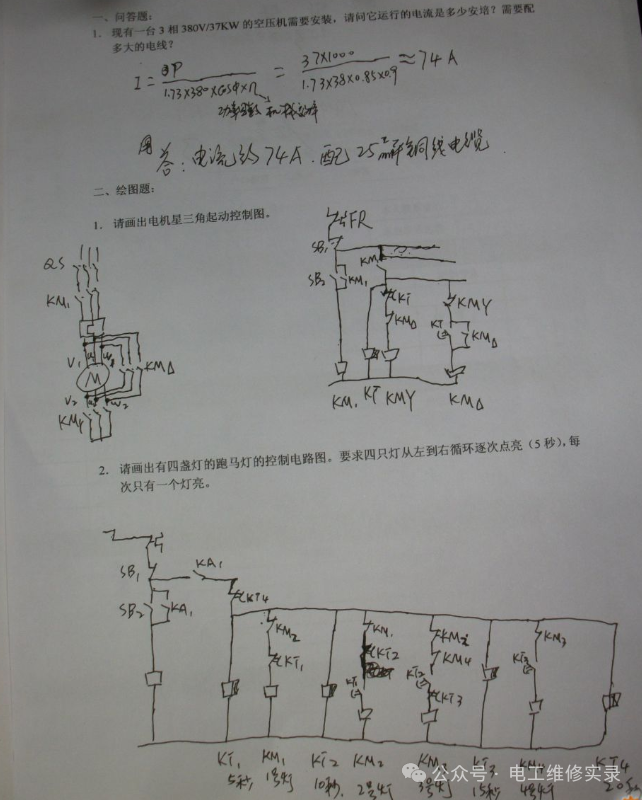 一、问答题：
1. 现有一台 3 相 380V/37KW 的空压机需要安装，请问它运行的电流是多少安培？需要配
多大的电线？
I = P / 1.73×380×cosφ×η = 37×1000 / 1.73×38×0.85×0.9 ≈ 74A
功率因数
答：电流约74A．配25 铜线电缆．
二、绘图题：
1. 请画出电机星三角起动控制图。
FR
QS
SB1
KM
SB2
KM1
KT
KMY
KM1
KMΔ
KT
KMΔ
V1
W1
M
KMΔ
V2
W2
KMY
KM1
KT
KMY
KMΔ
2. 请画出有四盏灯的跑马灯的控制电路图。要求四只灯从左到右循环逐次点亮（5 秒），每
次只有一个灯亮。
SB1
KA1
KT4
SB2
KA1
KM2
KM1
KM2
KM3
KT1
KT2
KM4
KT3
KT1
KT2
KT3
KT1
KM1
KT2
KM2
KM3
KT3
KT4
5秒
1号灯
10秒
2号灯
3号灯
15秒
4号灯
20
公众号 · 电工维修实录